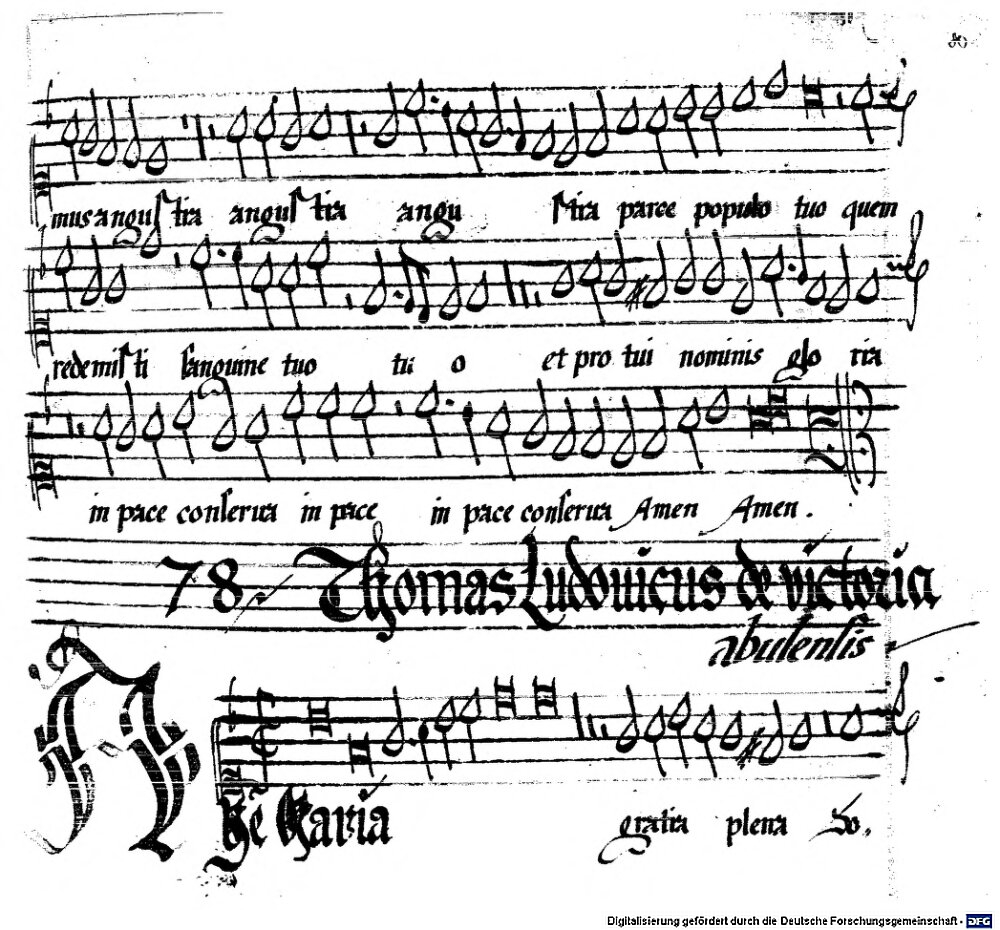 80
mus angustia angustia angu stia parce populo tuo quem
redemisti sanguine tuo tu o et pro tui nominis glo ria
in pace conserua in pace in pace conserua Amen Amen.
78. Thomas Ludouicus de victoria
abulensis
Aue Maria gratia plena Do.
Digitalisierung gefördert durch die Deutsche Forschungsgemeinschaft - DFG